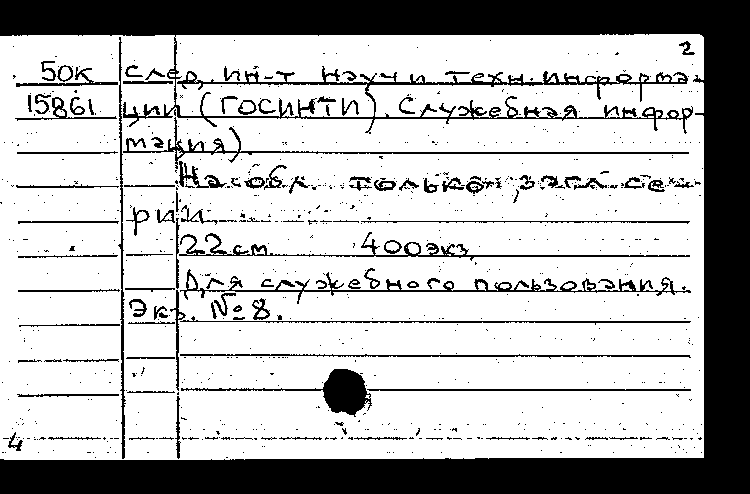 2
50К след. ин-т науч и техн. информа-
15861 ции (ГОСИНТИ). Служебная инфор-
мация).
На обл. только загл. се-
рии.
22 см 400 экз.
Для служебного пользования.
Экз. № 8.
4